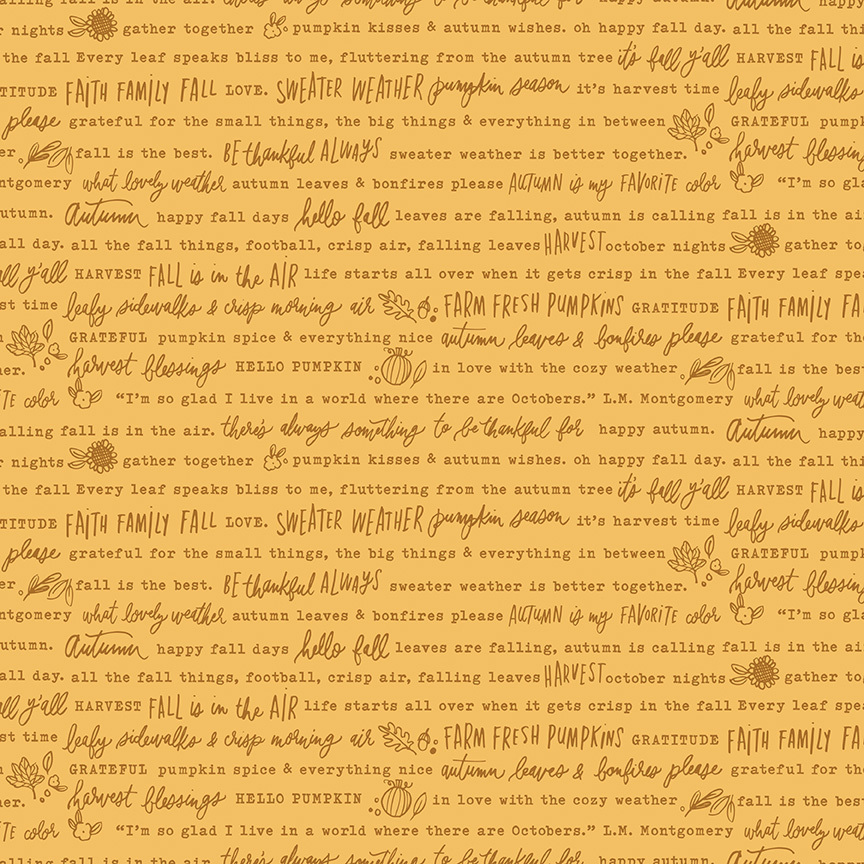 alling fall is in the air. there's always something to be thankful for happy autumn. Autumn happy
r nights gather together pumpkin kisses & autumn wishes. oh happy fall day. all the fall thi
the fall Every leaf speaks bliss to me, fluttering from the autumn tree it's fall y'all HARVEST FALL is
TITUDE FAiTH FAMiLY FALL LOVE. SWEATER WEATHER pumpkin season it's harvest time leafy sidewalks
please grateful for the small things, the big things & everything in between GRATEFUL pumpk
er. fall is the best. BE thankful ALWAYS sweater weather is better together. harvest blessing
ntgomery what lovely weather autumn leaves & bonfires please AUTUMN is my FAVORiTE color “I'm so gla
utumn. Autumn happy fall days hello fall leaves are falling, autumn is calling fall is in the ai
all day. all the fall things, football, crisp air, falling leaves HARVEST october nights gather to
all y'all HARVEST FALL is in the AiR life starts all over when it gets crisp in the fall Every leaf spea
st time leafy sidewalks & crisp morning air FARM FRESH PUMPKiNS GRATITUDE FAiTH FAMiLY FA
GRATEFUL pumpkin spice & everything nice autumn leaves & bonfires please grateful for the
her. harvest blessings HELLO PUMPKIN in love with the cozy weather. fall is the best
TE color “I'm so glad I live in a world where there are Octobers.” L.M. Montgomery what lovely weat
alling fall is in the air. there's always something to be thankful for happy autumn. Autumn happy
r nights gather together pumpkin kisses & autumn wishes. oh happy fall day. all the fall thi
the fall Every leaf speaks bliss to me, fluttering from the autumn tree it's fall y'all HARVEST FALL is
TITUDE FAiTH FAMiLY FALL LOVE. SWEATER WEATHER pumpkin season it's harvest time leafy sidewalks
please grateful for the small things, the big things & everything in between GRATEFUL pumpk
er. fall is the best. BE thankful ALWAYS sweater weather is better together. harvest blessing
ntgomery what lovely weather autumn leaves & bonfires please AUTUMN is my FAVORiTE color “I'm so gla
utumn. Autumn happy fall days hello fall leaves are falling, autumn is calling fall is in the ai
all day. all the fall things, football, crisp air, falling leaves HARVEST october nights gather to
all y'all HARVEST FALL is in the AiR life starts all over when it gets crisp in the fall Every leaf spea
st time leafy sidewalks & crisp morning air FARM FRESH PUMPKiNS GRATITUDE FAiTH FAMiLY FA
GRATEFUL pumpkin spice & everything nice autumn leaves & bonfires please grateful for the
her. harvest blessings HELLO PUMPKIN in love with the cozy weather. fall is the best
TE color “I'm so glad I live in a world where there are Octobers.” L.M. Montgomery what lovely weat
alling fall is in the air. there's always something to be thankful for happy autumn. Autumn